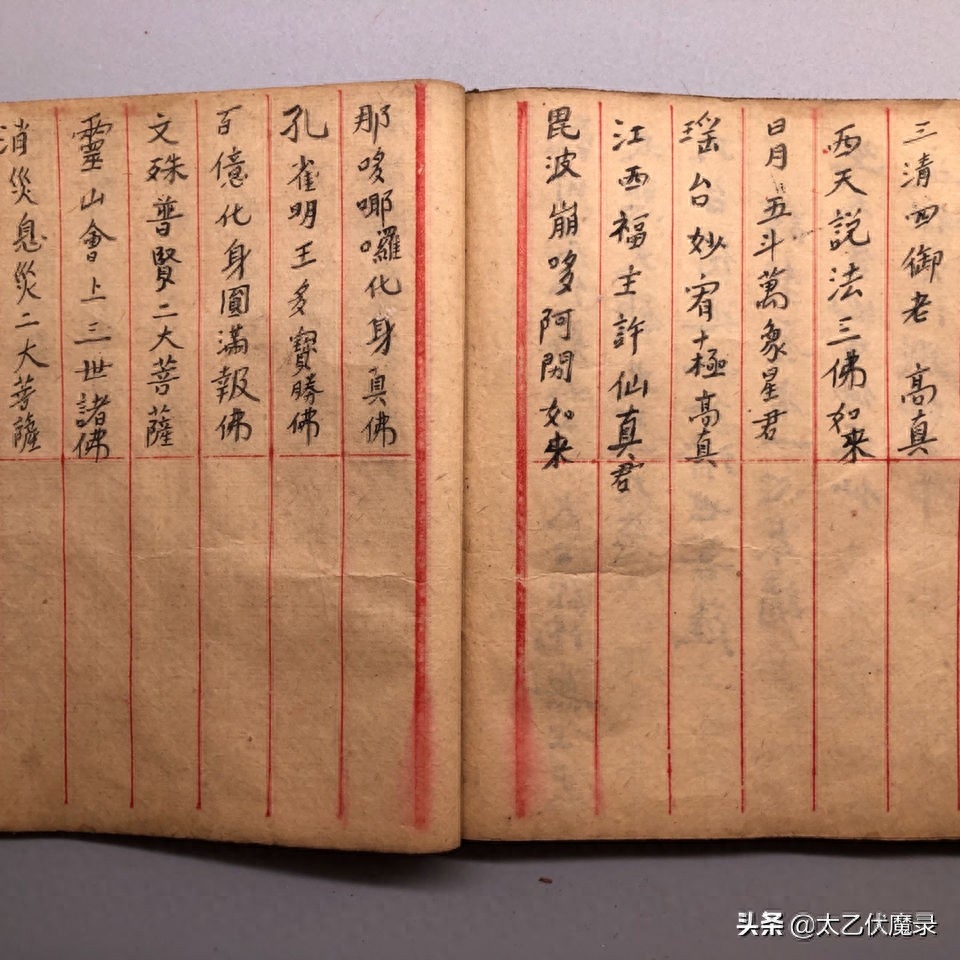 三清四御老 高真
西天說法三佛如來
日月五斗萬象星君
瑶台妙宥十極高真
江西福主許仙真君
毘波崩哆阿閦如來
那哆哪囉化身真佛
孔雀明王多寶勝佛
百億化身圓滿報佛
文殊普賢二大菩薩
靈山會上三世諸佛
消災息災二大菩薩
头条 @太乙伏魔录